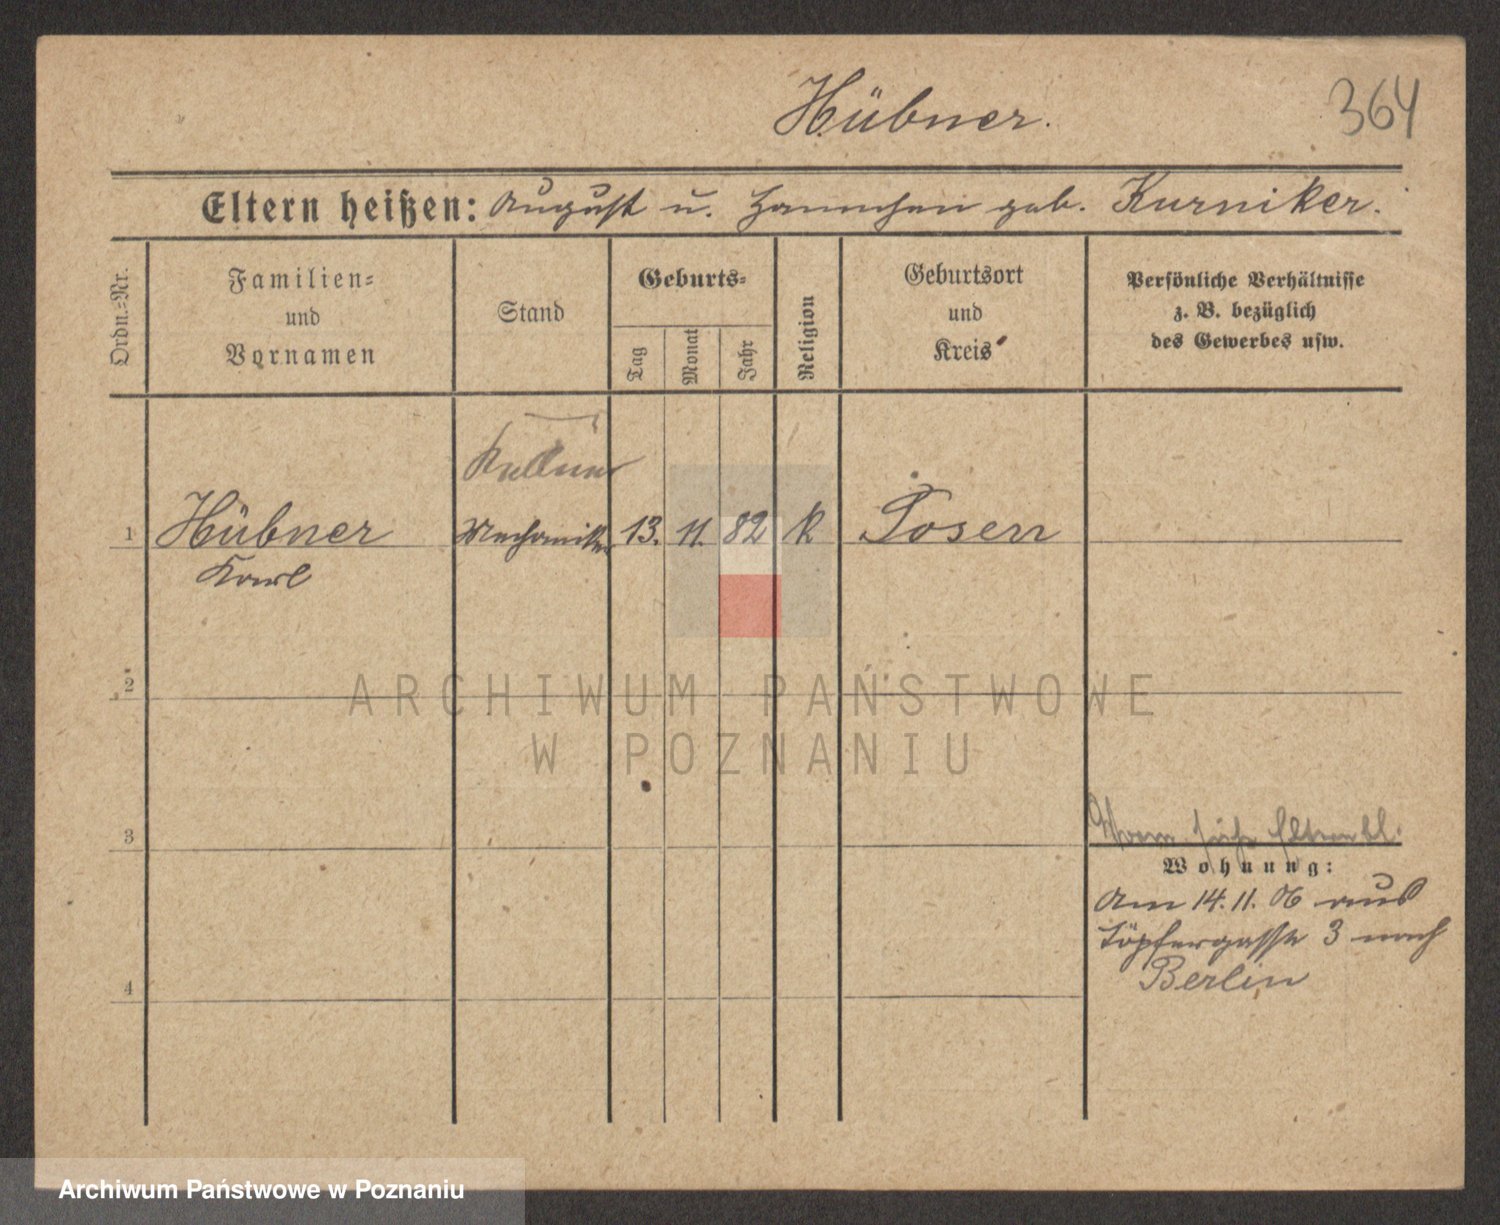 Hübner.
364
Eltern heißen: August u. Hannchen geb. Kurniker.
Ordn.=Nr.
Familien=
und
Vornamen
Stand
Geburts=
Tag
Monat
Jahr
Religion
Geburtsort
und
Kreis
Persönliche Verhältnisse
z. B. bezüglich
des Gewerbes usw.
Kellner
1 Hübner Mechaniker 13. 11. 82 k Posen
Karl
2
ARCHIWUM PAŃSTWOWE
W POZNANIU
3
siehe Eltern bl.
Wohnung:
Am 14. 11. 06 aus
Töpfergasse 3 nach
Berlin
4
Archiwum Państwowe w Poznaniu